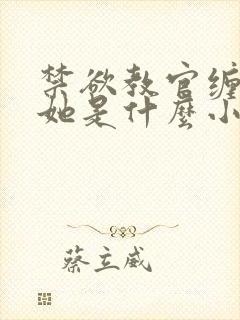 禁欲教官缠
她是什麼小
蔡立威